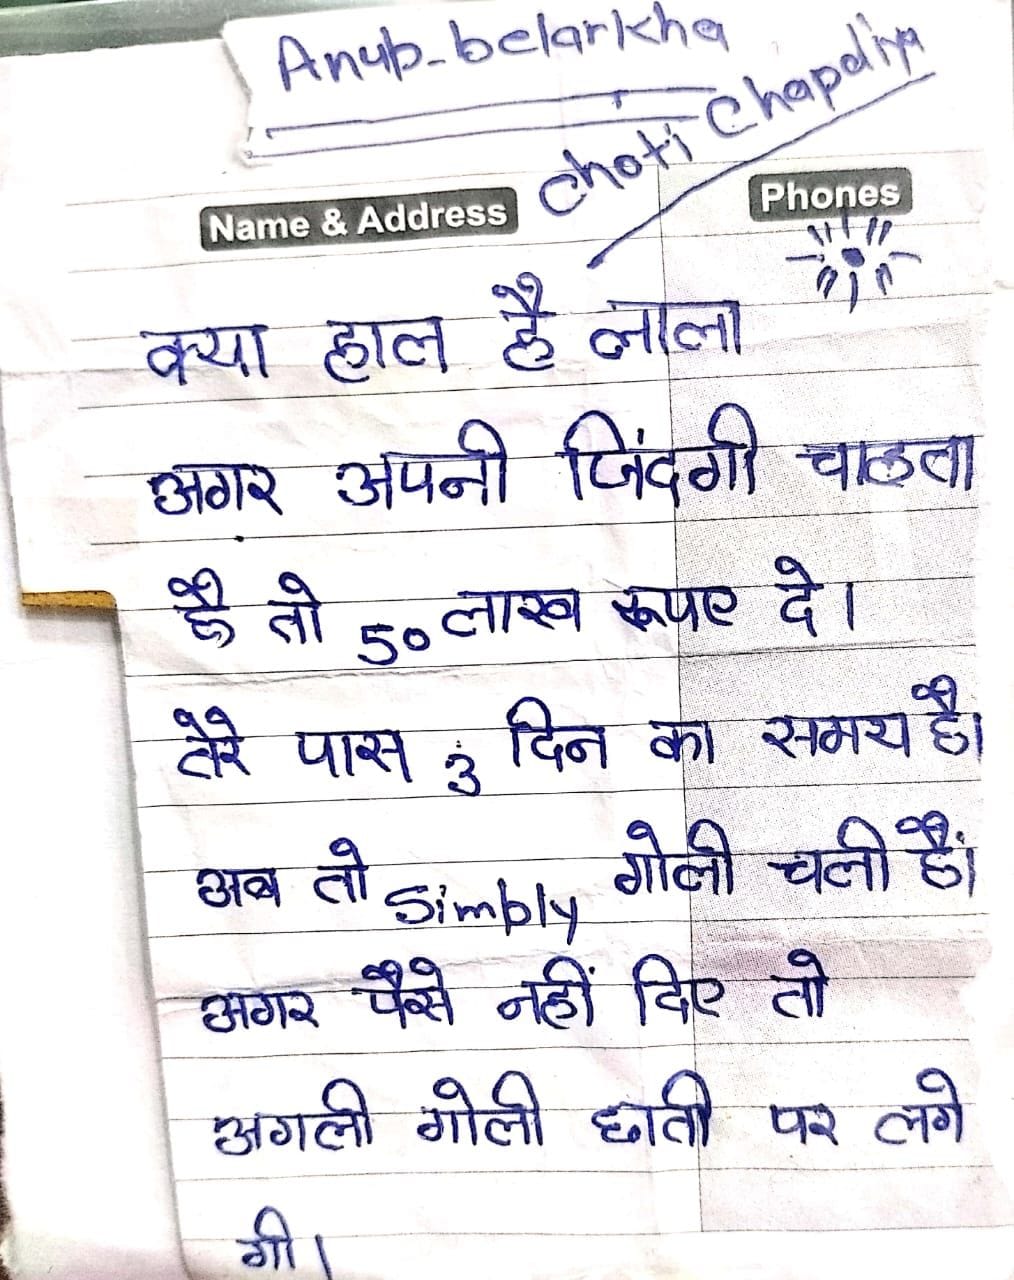 Anup-belarkha
Choti Chapaliya
Name & Address
Phones
क्या हाल है लाला
अगर अपनी जिंदगी चाहता
है तो 50 लाख रूपए दे।
तेरे पास 3 दिन का समय है।
अब तो Simply गोली चली हैं।
अगर पैसे नहीं दिए तो
अगली गोली छाती पर लगे
गी।